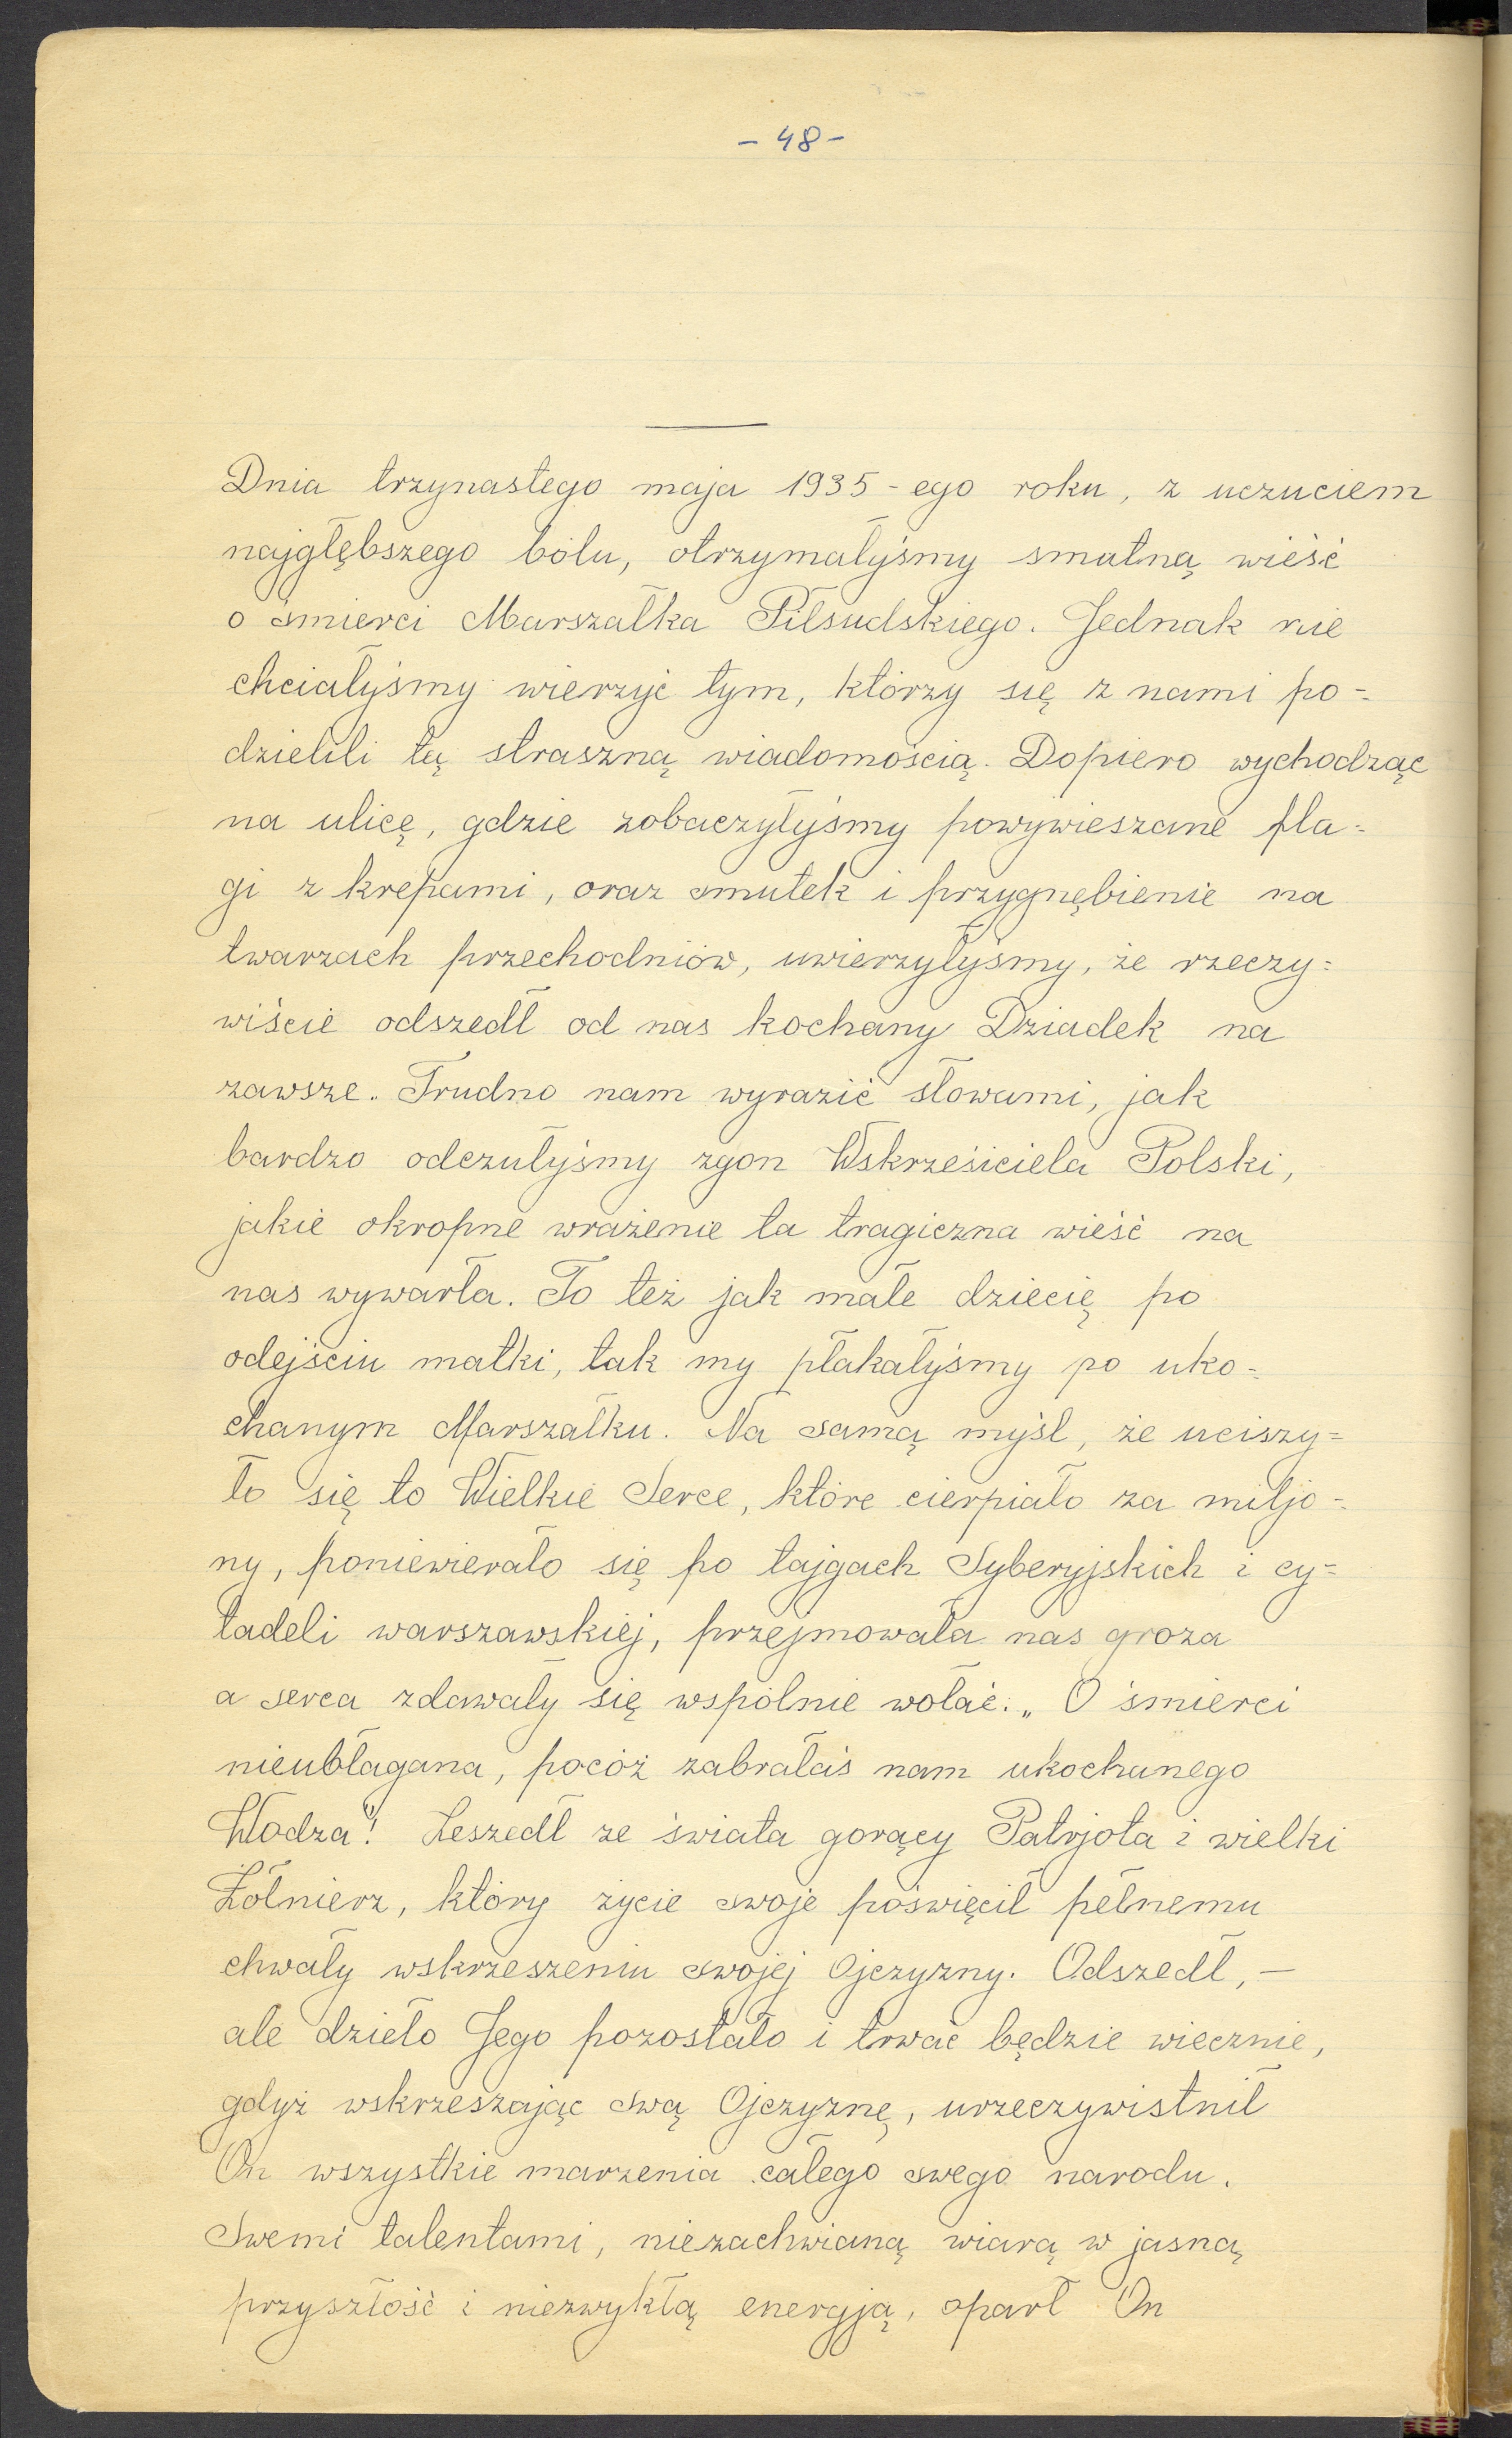 - 48 -
Dnia trzynastego maja 1935 - ego roku, z uczuciem
najgłębszego bólu, otrzymałyśmy smutną wieść
o śmierci Marszałka Piłsudskiego. Jednak nie
chciałyśmy wierzyć tym, którzy się z nami po=
dzielili tą straszną wiadomością. Dopiero wychodząc
na ulicę, gdzie zobaczyłyśmy powywieszane fla=
gi z krepami, oraz smutek i przygnębienie na
twarzach przechodniów, uwierzyłyśmy, że rzeczy=
wiście odszedł od nas kochany Dziadek na
zawsze. Trudno nam wyrazić słowami, jak
bardzo odczułyśmy zgon Wskrzesiciela Polski,
jakie okropne wrażenie ta tragiczna wieść na
nas wywarła. To też jak małe dziecię po
odejściu matki, tak my płakałyśmy po uko=
chanym Marszałku. Na samą myśl, że uciszy=
ło się to Wielkie Serce, które cierpiało za miljo=
ny, poniewierało się po tajgach Syberyjskich i cy=
tadeli warszawskiej, przejmowała nas groza
a serca zdawały się wspólnie wołać: „ O śmierci
nieubłagana, pocóż zabrałaś nam ukochanego
Wodza"! Zeszedł ze świata gorący Patrjota i wielki
Żołnierz, który życie swoje poświęcił pełnemu
chwały wskrzeszeniu swojej Ojczyzny. Odszedł, —
ale dzieło Jego pozostało i trwać będzie wiecznie,
gdyż wskrzeszając swą Ojczyznę, urzeczywistnił
On wszystkie marzenia całego swego narodu.
Swemi talentami, niezachwianą wiarą w jasną
przyszłość i niezwykłą energją, oparł On